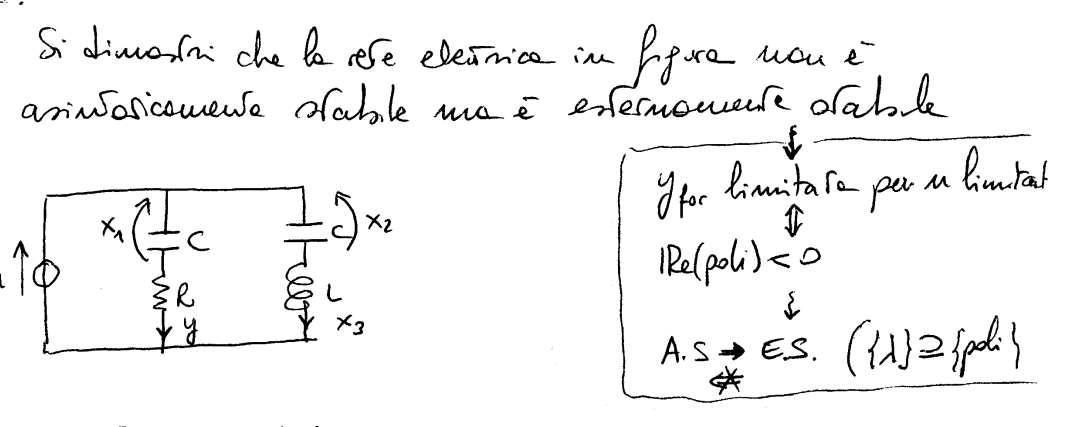 Si dimostri che la rete elettrica in figura non è
asintoticamente stabile ma è esternamente stabile
y for limitata per u limitat
⇕
Re(poli) < 0
A.S → E.S. ({λ} ⊇ {poli}
⇍
x1 C C x2
R L
y x3